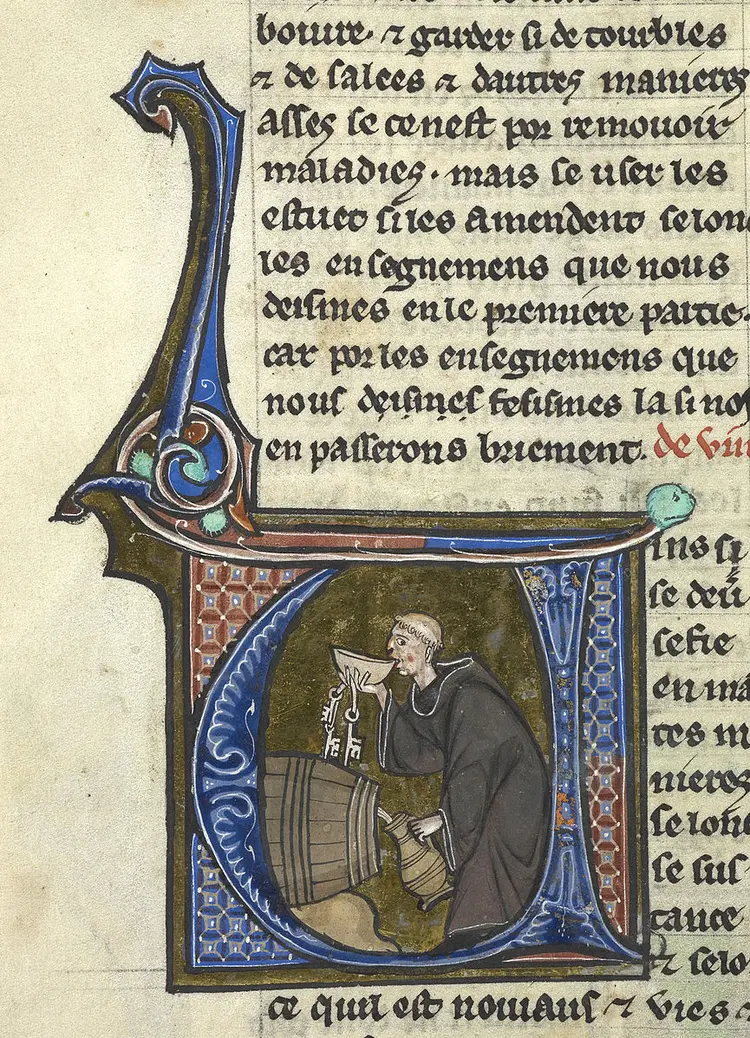 boiure · ⁊ garder si de tourbles
⁊ de salees ⁊ dautres manieres
asses se ce nest por remouoir
maladies · mais se user les
estuet si les amendent selonc
les ensegnemens que nous
deisimes en le premiere partie ·
car por les ensegnemens que
nous deisimes fesismes la si nos
en passerons briement. de vin
U
ins si
se deu
sefie
en ma
tes m
nieres
selonc
se sus
tance
⁊ selo
ce quil est nouiaus ⁊ vies ⁊